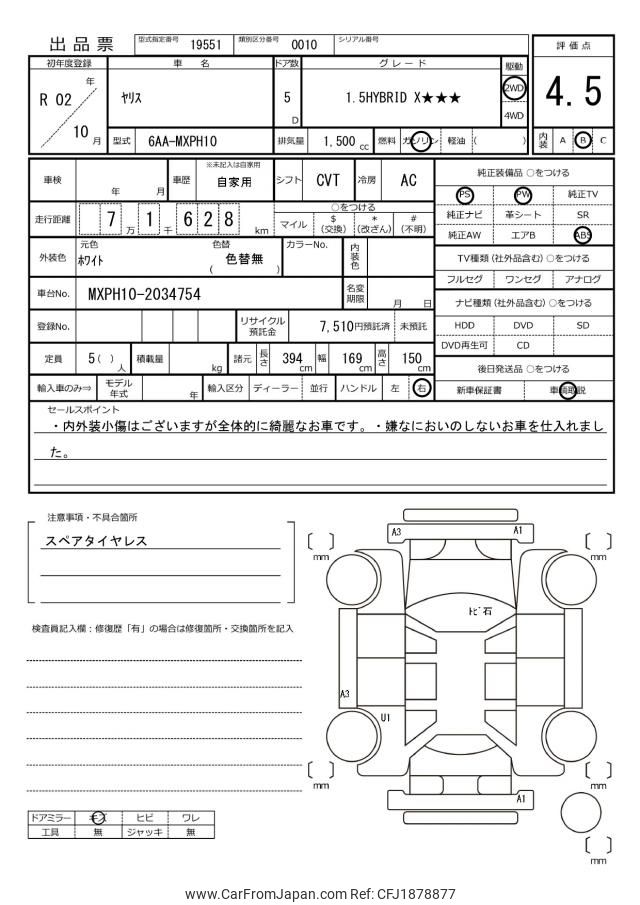 出品票
型式指定番号 19551 類別区分番号 0010 シリアル番号
評価点
4.5
内装 A B C
初年度登録 車名 ドア数 グレード 駆動
R 02 年 10 月
ヤリス 5 D 1.5HYBRID X★★★ 2WD 4WD
型式 6AA-MXPH10 排気量 1,500 cc 燃料 ガソリン 軽油 ( )
車検 年 月 車歴 ※未記入は自家用 自家用 シフト CVT 冷房 AC
走行距離 7 1 6 2 8 万 千 km
○をつける
マイル $(交換) *(改ざん) #(不明)
外装色 元色 ホワイト 色替 ( 色替無 ) カラーNo. 内装色
車台No. MXPH10-2034754 名変期限 月 日
登録No. リサイクル預託金 7,510円預託済 未預託
定員 5( )人 積載量 kg 諸元 長さ 394 cm 幅 169 cm 高さ 150 cm
輸入車のみ⇒ モデル年式 年 輸入区分 ディーラー 並行 ハンドル 左 右
純正装備品 ○をつける
PS PW 純正TV
純正ナビ 革シート SR
純正AW エアB ABS
TV種類(社外品含む)○をつける
フルセグ ワンセグ アナログ
ナビ種類(社外品含む)○をつける
HDD DVD SD
DVD再生可 CD
後日発送品 ○をつける
新車保証書 車輌取説
セールスポイント
・内外装小傷はございますが全体的に綺麗なお車です。・嫌なにおいのしないお車を仕入れまし
た。
注意事項・不具合箇所
スペアタイヤレス
検査員記入欄：修復歴「有」の場合は修復箇所・交換箇所を記入
A3 A1
[ ] mm [ ] mm
トビ石
A3
U1
[ ] mm [ ] mm
A1
[ ] mm
ドアミラー キズ ヒビ ワレ
工具 無 ジャッキ 無
www.CarFromJapan.com Ref: CFJ1878877